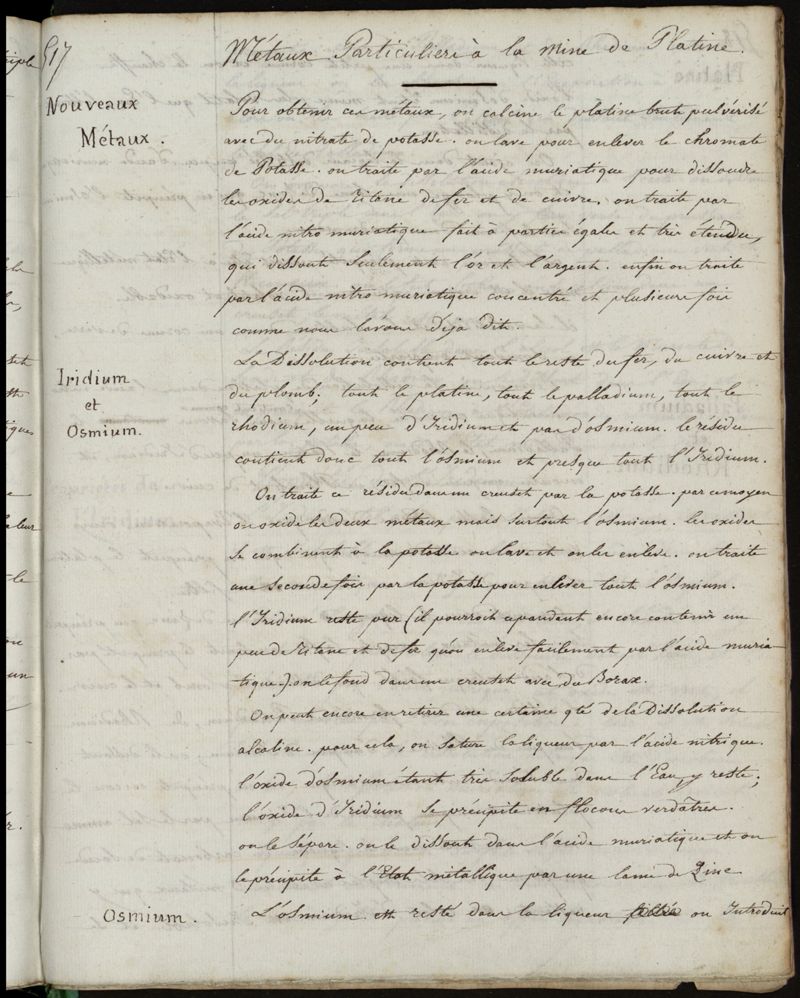 517
Métaux Particuliers à la mine de Platine.
Nouveaux
Métaux.
Pour obtenir ces métaux, on calcine le platine brut pulvérisé
avec du nitrate de potasse. on lave pour enlever le chromate
de Potasse. on traite par l'acide muriatique pour dissoudre
les oxides de Titane de fer et de cuivre. on traite par
l'acide nitro muriatique fait à parties égales et très étendu,
qui dissout seulement l'or et l'argent. enfin on traite
par l'acide nitro muriatique concentré et plusieurs fois
comme nous l'avons déja dit.
Iridium
et
Osmium.
La Dissolution contient tout le reste du fer, du cuivre et
du plomb; tout le platine, tout le palladium, tout le
rhodium, un peu d'Iridium et pas d'osmium. le résidu
contient donc tout l'osmium et presque tout l'Iridium.
On traite ce résidu dans un creuset par la potasse. par ce moyen
on oxide les deux métaux mais surtout l'osmium. les oxides
se combinent à la potasse on lave et on les enlève. on traite
une seconde fois par la potasse pour enlever tout l'osmium.
l'Iridium reste pur (il pourroit cependant encore contenir un
peu de titane et de fer qu'on enlève facilement par l'acide muria-
tique.) on le fond dans un creuset avec du Borax.
On peut encore en retirer une certaine qté de la Dissolution
alcaline. pour cela, on sature la liqueur par l'acide nitrique.
l'oxide d'osmium étant très soluble dans l'Eau y reste;
l'oxide d'Iridium se précipite en flocons verdâtres.
on le sépare. on le dissout dans l'acide muriatique et on
le précipite à l'Etat métallique par une lame de Zinc
Osmium.
L'osmium est resté dans la liqueur on Introduit